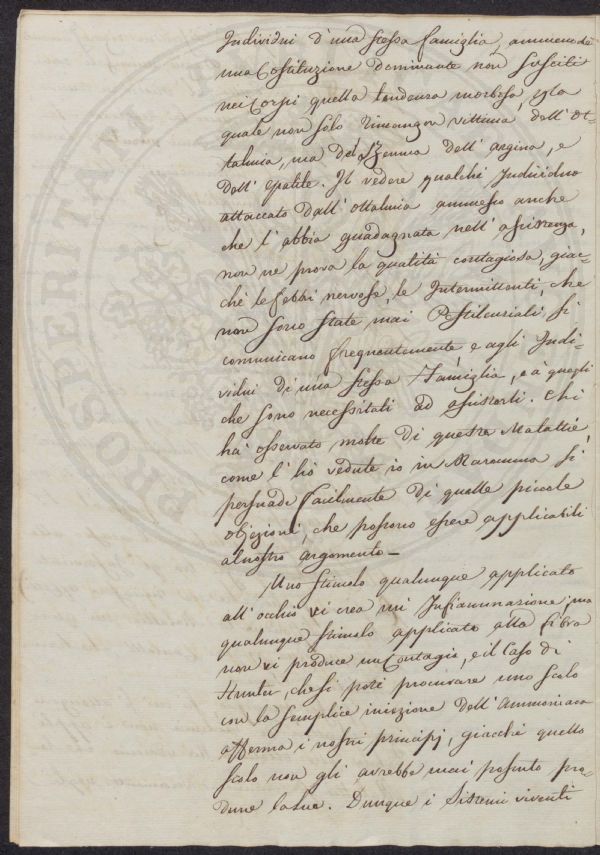 Individui d'una stessa famiglia, ammeno che
una Costituzione dominante non susciti
nei Corpi quella tendenza morbosa,
quale non solo rimangon vittima dell'Ot-
talmia, ma dell'Szemma dell'argina, e
dell'epatite. Il vedere qualche Individuo
attaccato dall'ottalmia ammesso anche
che l'abbia guadagnata nell'assistenza,
non ne prova la qualità contagiosa, giac-
chè le febbri nervose, le Intermittenti, che
non sono state mai Pestilenziali si
comunicano frequentemente, e agli Indi-
vidui di una stessa Famiglia, e à quegli
che sono necessitati ad assisterli. Chi
hà osservato molte di queste Malattie,
come l'hò vedute io in Maremma si
persuade facilmente di quelle piccole
objezioni, che possono essere applicabili
al nostro argomento _
Uno stimolo qualunque applicato
all'occhio vi crea un Infiammazione; ma
qualunque stimolo applicato alla fibra
non vi produce un Contagio, e il Caso di
Hunter, che si potè procurare uno scolo
con la semplice iniezione dell'Ammoniaca
afferma i nostri principj, giacchè quello
scolo non gli avrebbe mai possuto pro-
durre la lue. Dunque i Sistemi viventi
PROSPERITATI